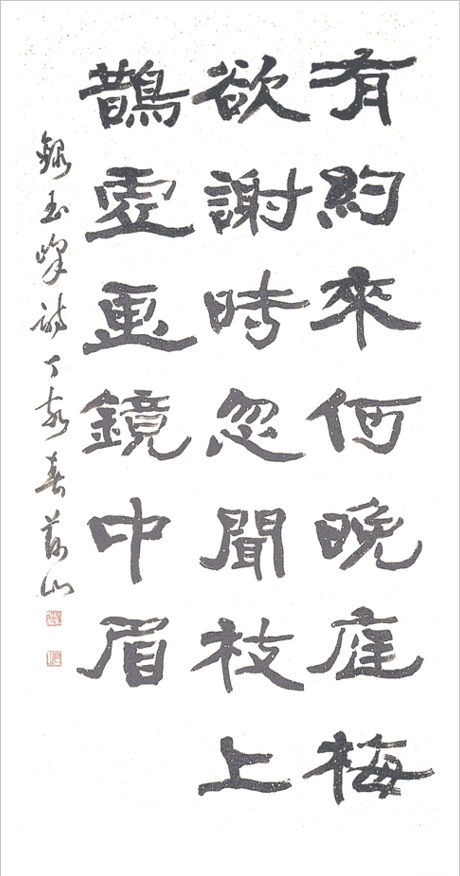 有約來何晚庭梅
欲謝時忽聞枝上
鵲虛畫鏡中眉
錄玉峰詩丁亥春